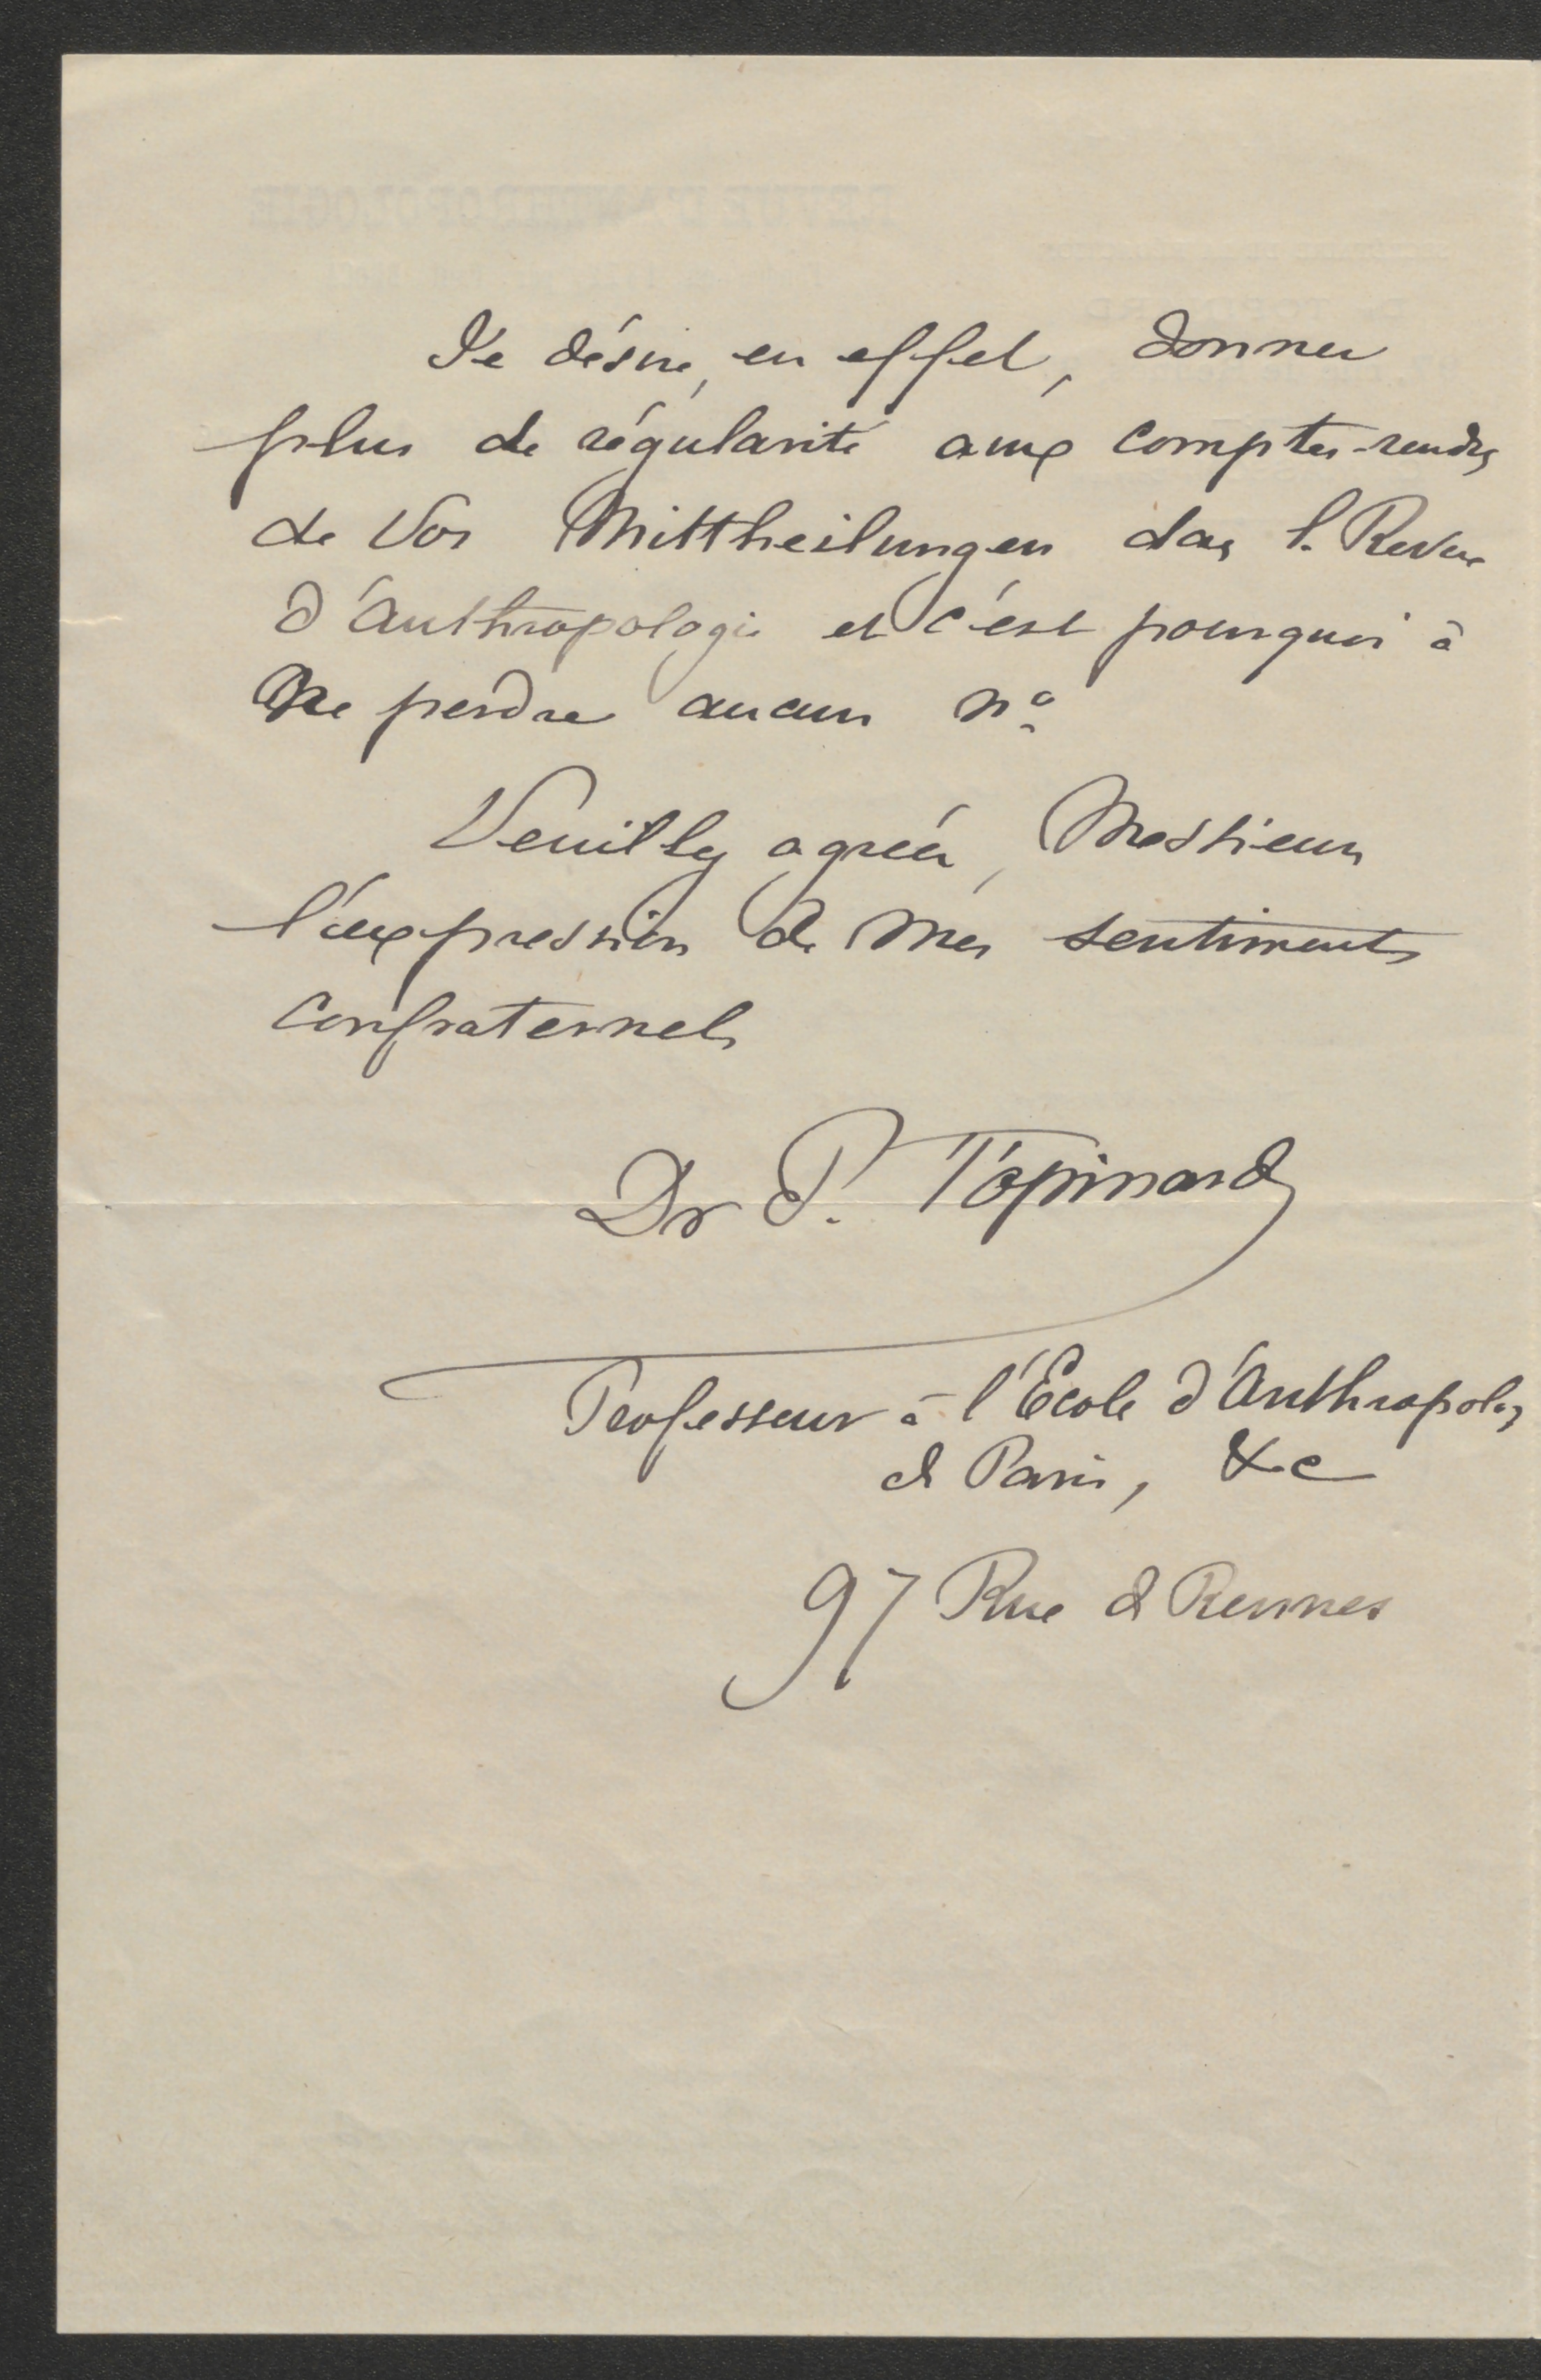 Je désire, en effet, donner
plus de régularité aux comptes-rendus
de vos Mittheilungen dans la Revue
d'Anthropologie et c'est pourquoi à
ne perdre aucun nº
Veuillez agréer, Messieurs
l'expression de mes sentiments
confraternels
Dr P. Topinard
Professeur à l'École d'Anthropolog
de Paris, &c
97 Rue de Rennes
REVUE D'ANTHROPOLOGIE